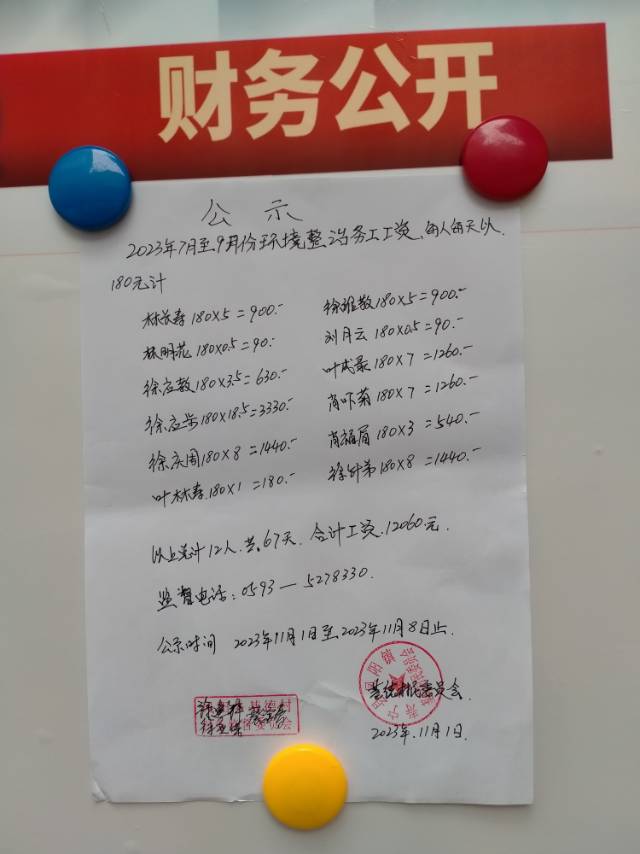 财务公开
公示
2023年7月至9月份环境整治务工工资,每人每天以
180元计
林长寿 180×5=900.-
徐祖数 180×5=900.-
林明花 180×0.5=90.-
刘月云 180×0.5=90.-
徐应数 180×3.5=630.-
叶成最 180×7=1260.-
徐应 180×18.5=3330.-
肖吓菊 180×7=1260.-
徐庆周 180×8=1440.-
肖福眉 180×3=540.-
叶林寿 180×1=180.-
徐 弟 180×8=1440.-
以上总计12人.共67天.合计工资.12060元.
监督电话:0593—5278330.
公示时间 2023年11月1日至2023年11月8日止.
村民委员会.
2023年.11月1日.